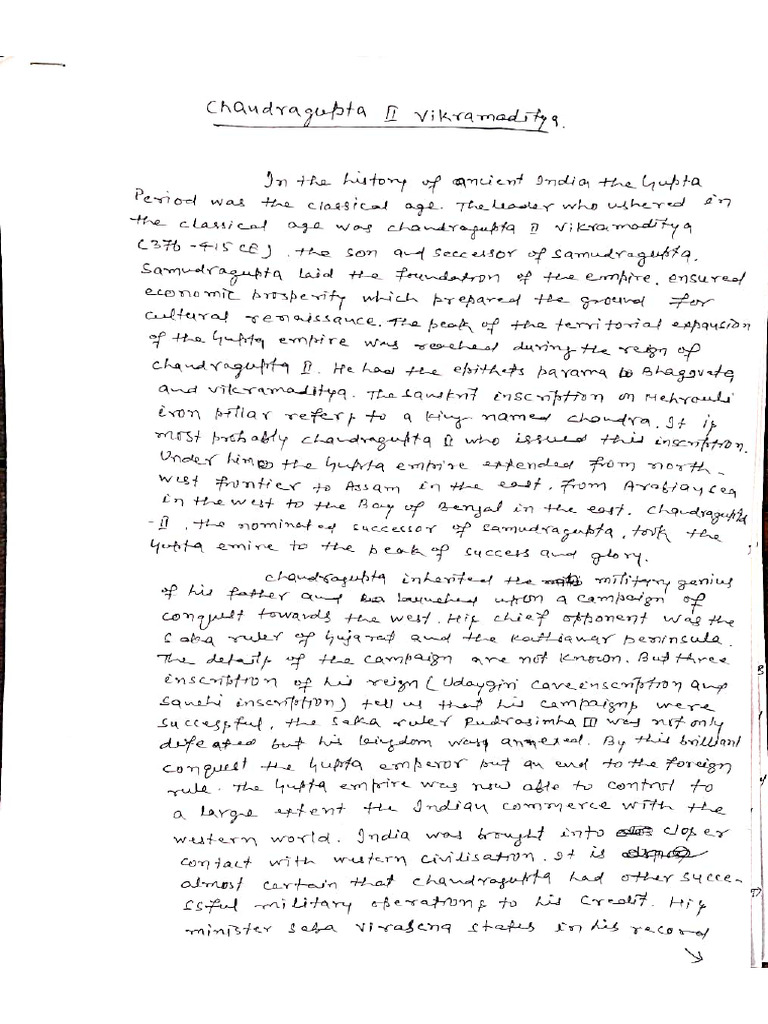 Chandragupta II Vikramaditya.
In the history of ancient India the Gupta
Period was the classical age. The leader who ushered in
the classical age was Chandragupta II Vikramaditya
(376-415 CE), the son and seccessor of Samudragupta.
Samudragupta laid the foundation of the empire, ensured
economic prosperity which prepared the ground for
cultural renaissance. The peak of the territorial expansion
of the Gupta empire was reached during the reign of
Chandragupta II. He had the epithets parama Bhagavata
and Vikramaditya. The Sanskrit inscription on Mehrauli
iron pillar refers to a king named Chandra. It is
most probably Chandragupta II who issued this inscription.
Under him the Gupta empire extended from north-
west frontier to Assam in the east, from Arabian sea
in the west to the Bay of Bengal in the east. Chandragupta
-II, the nominated successor of Samudragupta, took the
Gupta emire to the peak of success and glory.
Chandragupta inherited the military genius
of his father and launched upon a campaign of
conquest towards the west. His chief opponent was the
Saka ruler of Gujarat and the Kathiawar peninsula.
The details of the campaign are not known. But three
inscription of his reign (Udaygiri cave inscription and
Sanchi inscription) tell us that his campaigns were
successful, the Saka ruler Rudrasimha III was not only
defeated but his kingdom was annexed. By this brilliant
conquest the Gupta emperor put an end to the foreign
rule. The Gupta empire was now able to control to
a large extent the Indian commerce with the
western world. India was brought into closer
contact with western civilisation. It is
almost certain that Chandragupta had other succe-
ssful military operations to his credit. His
minister Saba Virasena states in his record